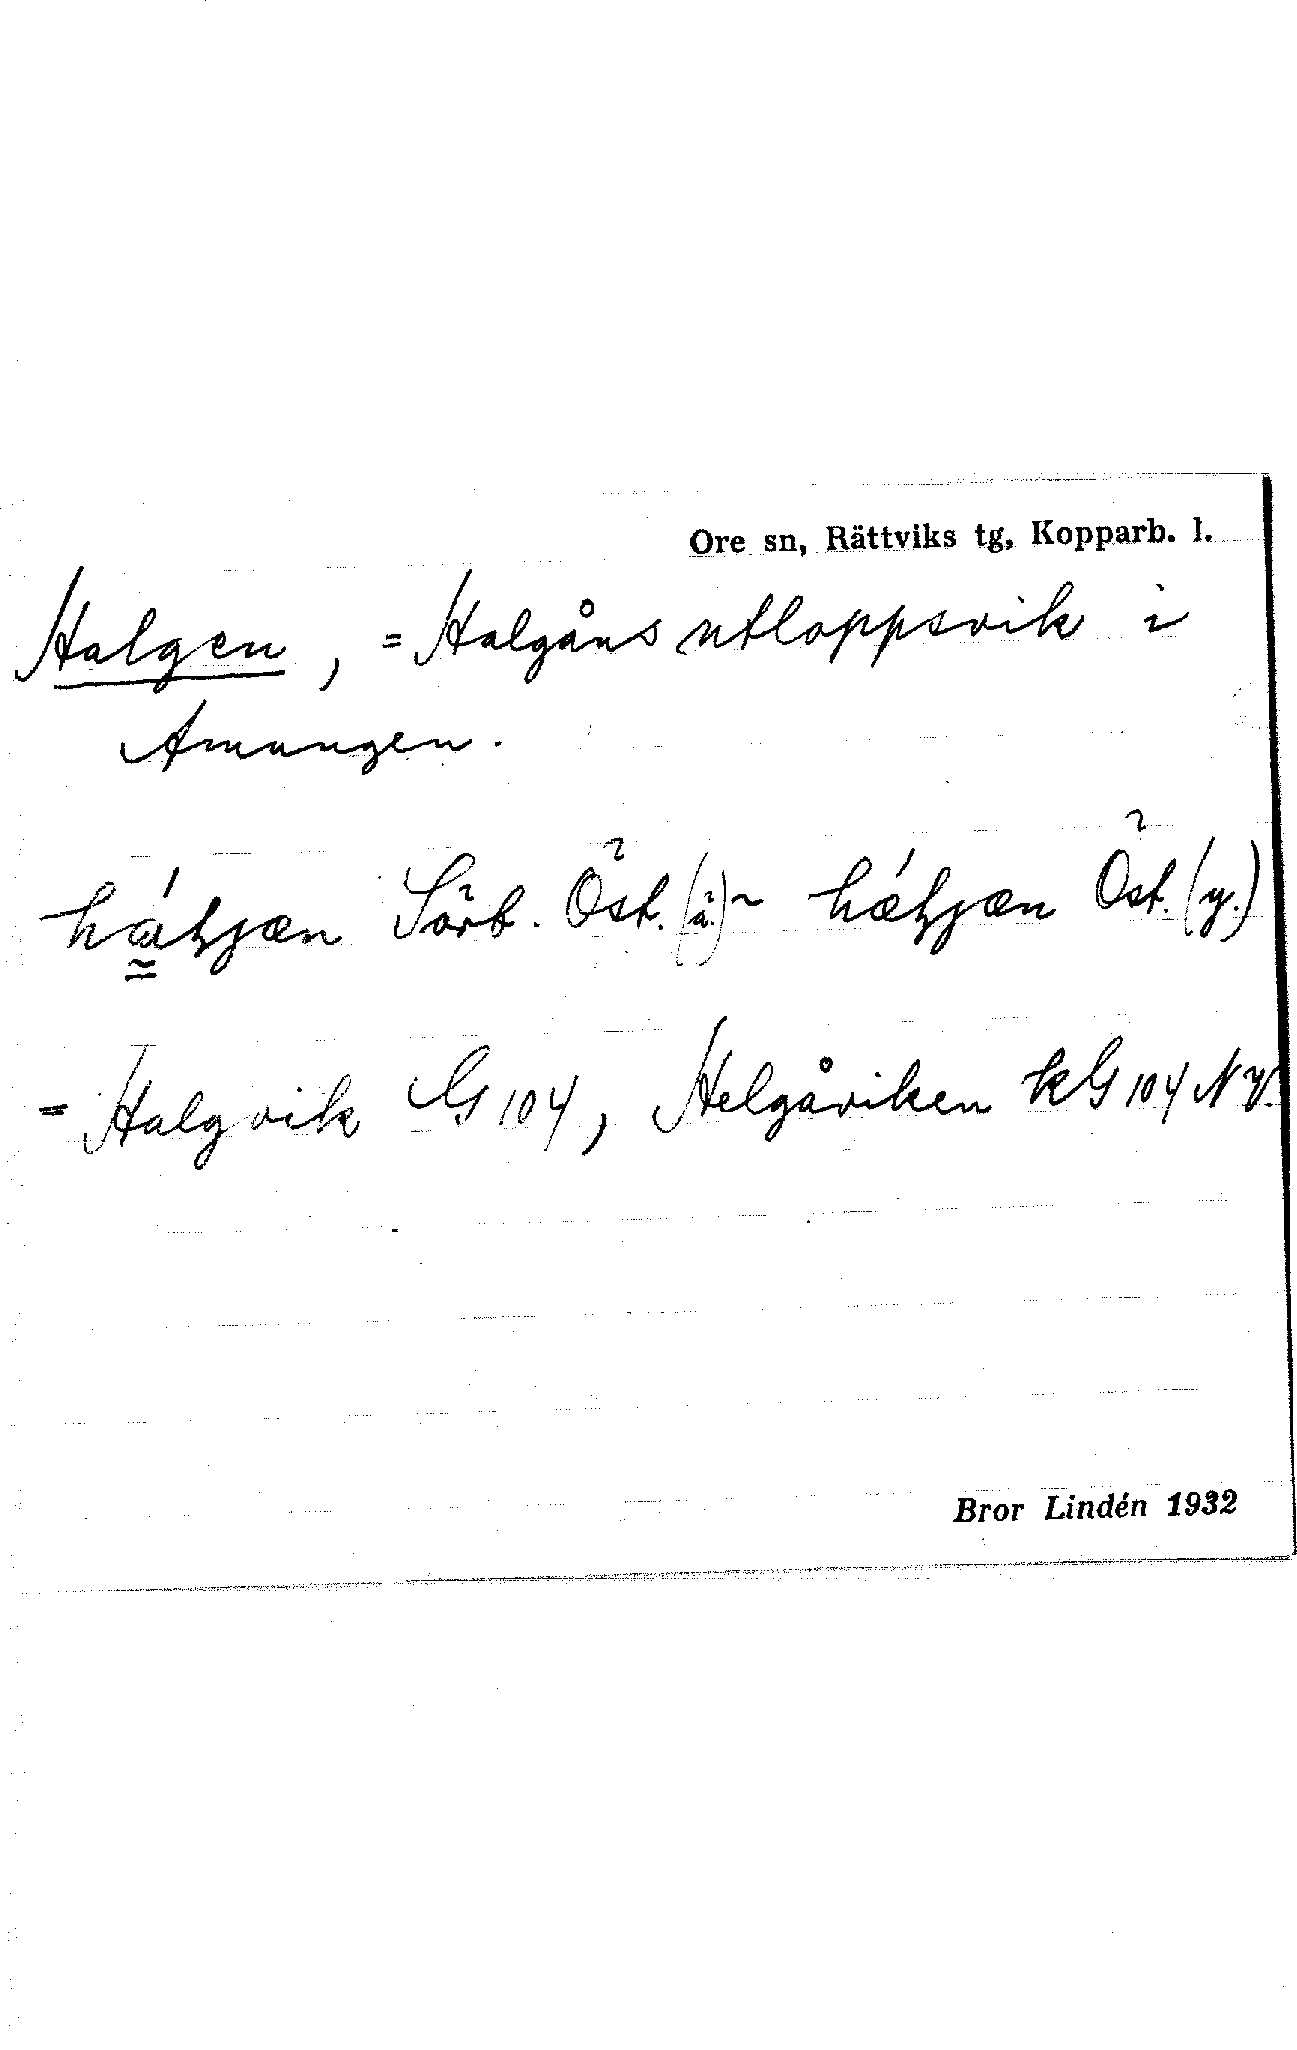 Ore sn, Rättviks tg, Kopparb. l.
Halgen, = Halgåns utloppsvik i
Amungen.
Sörb. Öst. (ä.) ~ Öst. (y.)
= Halgvik G 104, Helgåviken kG 104 NV.
Bror Lindén 1932